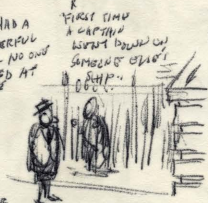 HAD A
ERFUL
NO ONE
ED AT
A
FIRST TIME
A CAPTAIN
WENT DOWN ON
SOMEONE ELSE'S
SHIP..